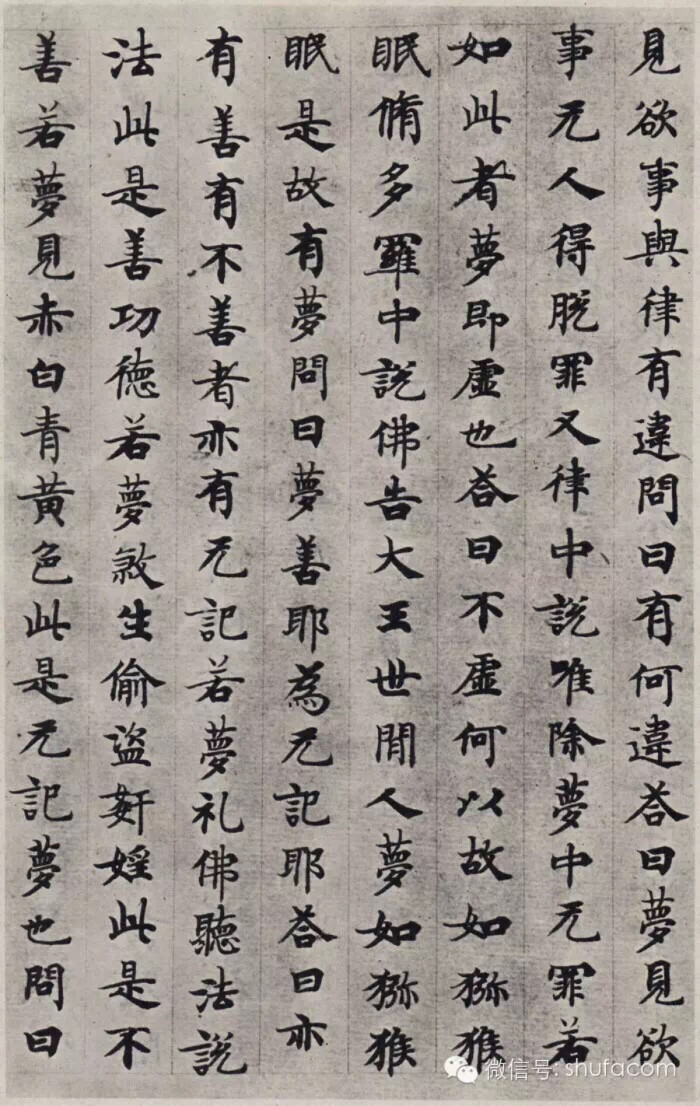 見欲事與律有違問曰有何違荅曰夢見欲
事无人得脱罪又律中説唯除夢中无罪若
如此者夢即虚也荅曰不虚何以故如猕猴
眠脩多羅中説佛告大王世間人夢如猕猴
眠是故有夢問曰夢善耶為无記耶荅曰亦
有善有不善者亦有无記若夢礼佛聽法説
法此是善功德若夢煞生偷盗姧婬此是不
善若夢見赤白青黄色此是无記夢也問曰
微信号: shufacom